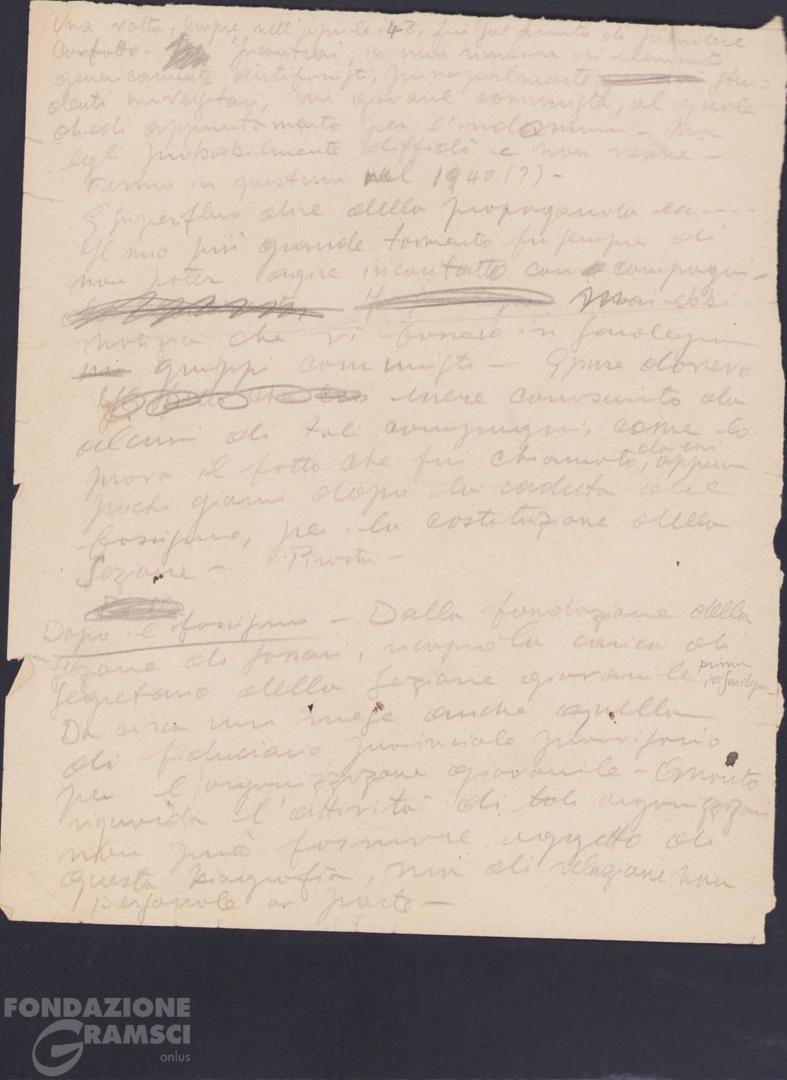 Una volta, sempre nell'aprile 43, fui sul punto di prendere
contatto. Incontrai, in una riunione di elementi
genericamente antifascisti, principalmente stu-
denti universitari, un giovane comunista, al quale
diedi appuntamento per l'indomani - Ma
egli probabilmente diffidò e non venne -
Fermo in questura nel 1940 (?) -
È superfluo dire della propaganda ecc----
Il mio più grande tormento fu sempre di
non poter agire in contatto con compagni -
Mai ebbi
notizia che vi fossero in Sardegna
gruppi comunisti - Eppure dovevo
essere conosciuto da
alcuni di tali compagni, come lo
prova il fatto che fui chiamato, da essi, appena
pochi giorni dopo la caduta del
fascismo, per la costituzione della
Sezione -
Dopo il fascismo - Dalla fondazione della
Sezione di Sassari, ricoprii la carica di
Segretario della Sezione giovanile prima in Sardegna
Da circa un mese anche quella
di fiduciario provinciale provvisorio
per l'organizzazione giovanile - Quanto
riguarda l'attività di tali organizzazioni
non può formare oggetto di
questa biografia, ma di relazione non
personale a parte -
FONDAZIONE
GRAMSCI
onlus